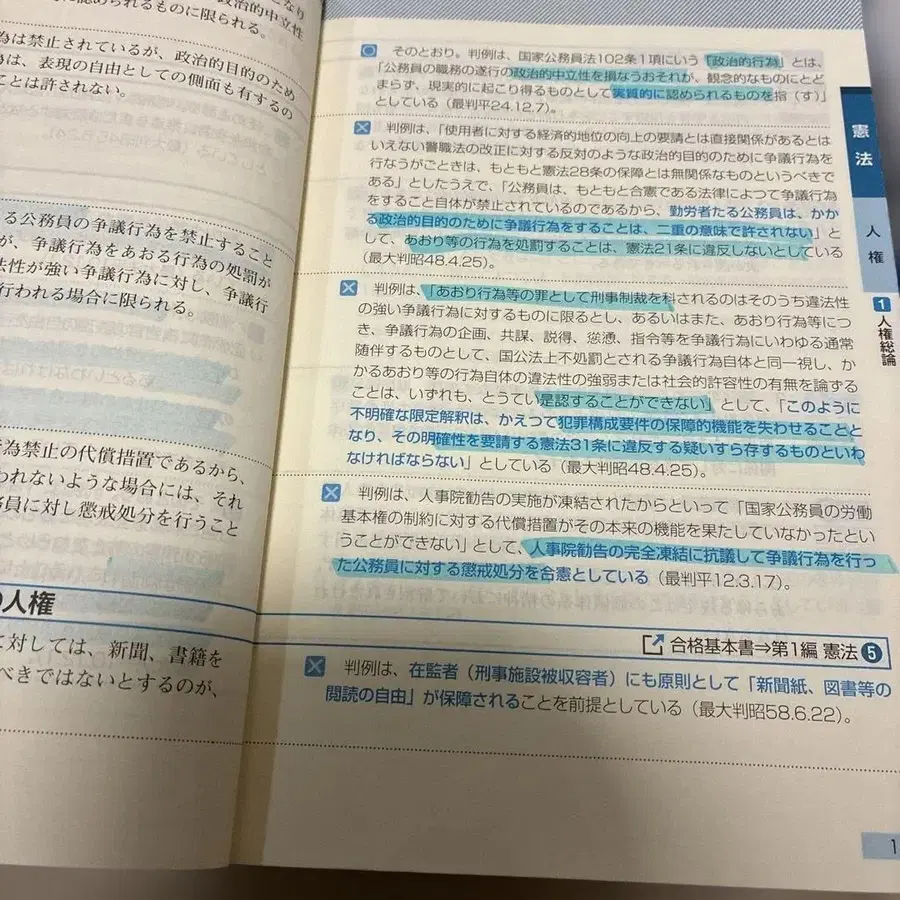 に認められるものに限られる。
為は禁止されているが、政治的目的のため
為は、表現の自由としての側面も有するの
ことは許されない。
る公務員の争議行為を禁止すること
が、争議行為をあおる行為の処罰が
法性が強い争議行為に対し、争議行
行われる場合に限られる。
為禁止の代償措置であるから、
われないような場合には、それ
務員に対し懲戒処分を行うこと
人権
対しては、新聞、書籍を
べきではないとするのが、
そのとおり。判例は、国家公務員法102条1項にいう「政治的行為」とは、
「公務員の職務の遂行の政治的中立性を損なうおそれが、観念的なものにとど
まらず、現実的に起こり得るものとして実質的に認められるものを指（す）」
としている（最判平24.12.7）。
判例は、「使用者に対する経済的地位の向上の要請とは直接関係があるとは
いえない警職法の改正に対する反対のような政治的目的のために争議行為を
行なうがごときは、もともと憲法28条の保障とは無関係なものというべきで
ある」としたうえで、「公務員は、もともと合憲である法律によつて争議行為
をすること自体が禁止されているのであるから、勤労者たる公務員は、かか
る政治的目的のために争議行為をすることは、二重の意味で許されない」と
して、あおり等の行為を処罰することは、憲法21条に違反しないとしている
（最大判昭48.4.25）。
判例は、「あおり行為等の罪として刑事制裁を科されるのはそのうち違法性
の強い争議行為に対するものに限るとし、あるいはまた、あおり行為等につ
き、争議行為の企画、共謀、説得、慫慂、指令等を争議行為にいわゆる通常
随伴するものとして、国公法上不処罰とされる争議行為自体と同一視し、か
かるあおり等の行為自体の違法性の強弱または社会的許容性の有無を論ずる
ことは、いずれも、とうてい是認することができない」として、「このように
不明確な限定解釈は、かえつて犯罪構成要件の保障的機能を失わせることと
なり、その明確性を要請する憲法31条に違反する疑いすら存するものといわ
なければならない」としている（最大判昭48.4.25）。
判例は、人事院勧告の実施が凍結されたからといって「国家公務員の労働
基本権の制約に対する代償措置がその本来の機能を果たしていなかったとい
うことができない」として、人事院勧告の完全凍結に抗議して争議行為を行っ
た公務員に対する懲戒処分を合憲としている（最判平12.3.17）。
合格基本書⇒第1編 憲法 5
判例は、在監者（刑事施設被収容者）にも原則として「新聞紙、図書等の
閲読の自由」が保障されることを前提としている（最大判昭58.6.22）。
憲法
人権
1 人権総論